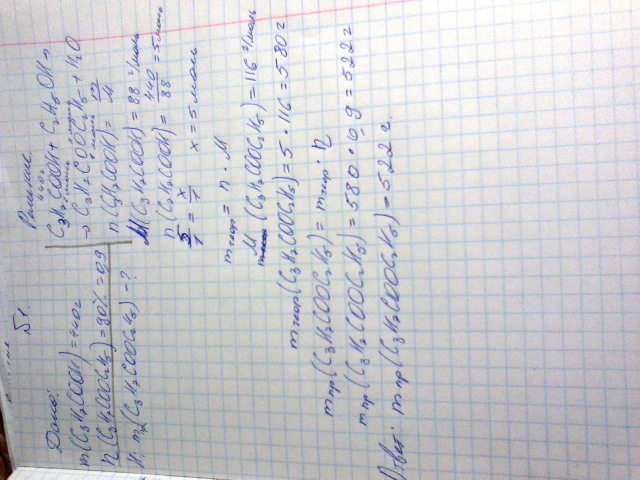 №1.
Дано:
m(C3H7COOH) = 440г
η(C3H7COOC2H5) = 90% = 0,9
m(C3H7COOC2H5) = ?
Решение
440г
C3H7COOH + C2H5OH →
1 моль
→ C3H7COOC2H5 + H2O
1 моль
n(C3H7COOH) = m/M
M(C3H7COOH) = 88 г/моль
n(C3H7COOH) = 440/88 = 5 моль
5/1 = x/1 x = 5 моль
mтеор = n · M
M(C3H7COOC2H5) = 116 г/моль
mтеор(C3H7COOC2H5) = 5 · 116 = 580г
mпр(C3H7COOC2H5) = mтеор · η
mпр(C3H7COOC2H5) = 580 · 0,9 = 522г
Ответ: mпр(C3H7COOC2H5) = 522г.